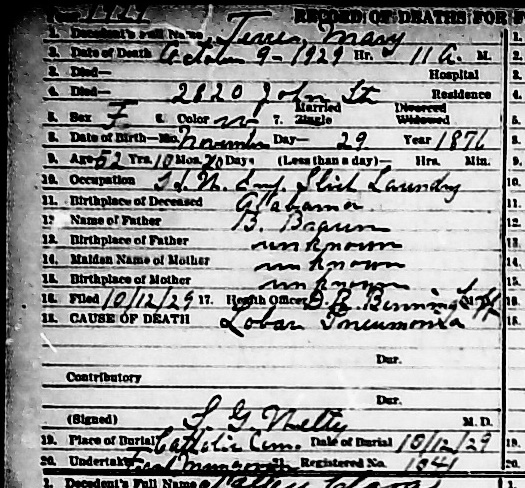 1929 RECORD OF DEATHS FOR
1. Decedent's Full Name Mary
2. Date of Death October 9-1929 Hr. 11 A. M.
3. Died— Hospital
4. Died— 2820 John St Residence
5. Sex F 6. Color W 7. Married Single Divorced Widowed
8. Date of Birth—Mo. November Day— 29 Year 1876
9. Age 52 Yrs. 10 Mon. Days (Less than a day)— Hrs. Min.
10. Occupation Laundry
11. Birthplace of Deceased Alabama
12. Name of Father B.
13. Birthplace of Father unknown
14. Maiden Name of Mother unknown
15. Birthplace of Mother unknown
16. Filed 10/12/29 17. Health Officer
18. CAUSE OF DEATH Lobar Pneumonia
Dur.
Contributory
Dur.
(Signed) M. D.
19. Place of Burial Catholic Cem. Date of Burial 10/12/29
20. Undertaker Registered No. 1041
1. Decedent's Full Name